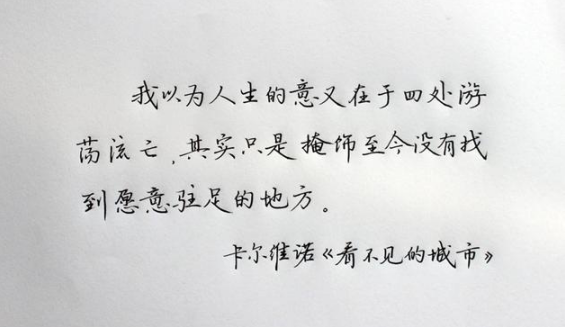 我以为人生的意义在于四处游
荡流亡，其实只是掩饰至今没有找
到愿意驻足的地方。
卡尔维诺《看不见的城市》